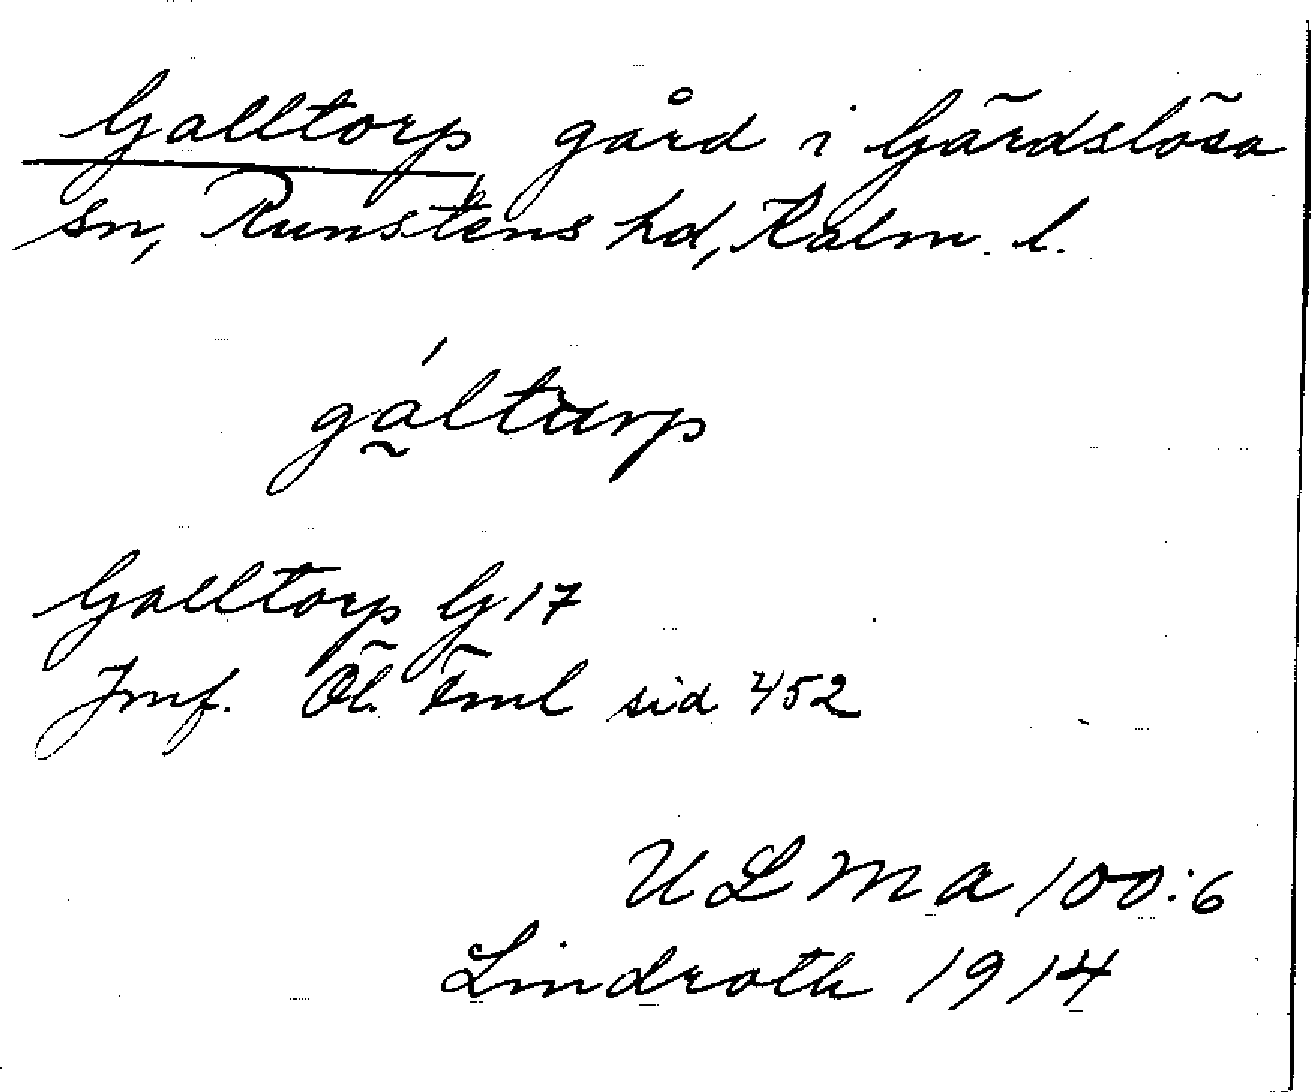 Galltorp gård i Gärdslösa
sn, Runstens hd, Kalm. l.
gá̰lturp
Galltorp G 17
Jmf. Öl. Fml sid 452
ULMA 100:6
Lindroth 1914